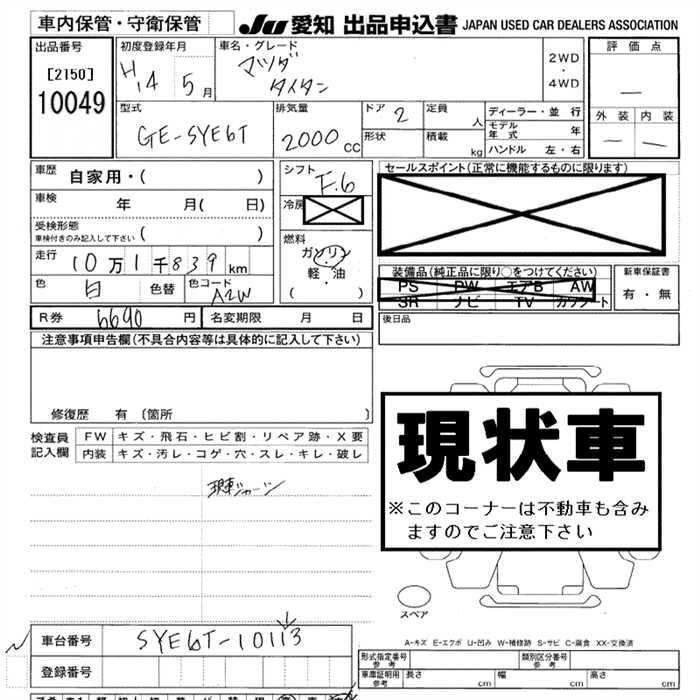 車内保管・守衛保管 JU 愛知 出品申込書 JAPAN USED CAR DEALERS ASSOCIATION
出品番号
[2150]
10049
初度登録年月
H14 5月
車名・グレード
マツダ
タイタン
2WD
・
4WD
評価点
—
外装 内装
— —
型式
GE-SYE6T
排気量
2000cc
ドア 2
形状
定員 人
積載 kg
ディーラー・並行
モデル年式 年
ハンドル 左・右
車歴 自家用・( )
車検 年 月( 日)
受検形態
車検付きのみ記入して下さい ( )
走行 10万1千839km
色 白 色替 色コード A2W
シフト F.6
冷房
燃料
ガソリン
・
軽油
( )
セールスポイント(正常に機能するものに限ります)
装備品(純正品に限り○をつけてください)
PS PW エアB AW
SR ナビ TV カワシート
新車保証書
有・無
R券 6690円 名変期限 月 日
後日品
注意事項申告欄(不具合内容等は具体的に記入して下さい)
修復歴 有 [箇所 ]
検査員記入欄
FW キズ・飛石・ヒビ割・リペア跡・X要
内装 キズ・汚レ・コゲ・穴・スレ・キレ・破レ
現車
現状車
※このコーナーは不動車も含み
ますのでご注意下さい
スペア
A-キズ E-エクボ U-凹み W-補修跡 S-サビ C-腐食 XX-交換済
車台番号 SYE6T-10113
登録番号
形式指定番号 参考
類別区分番号 参考
車庫証明用 参考 長さ cm 幅 cm 高さ cm